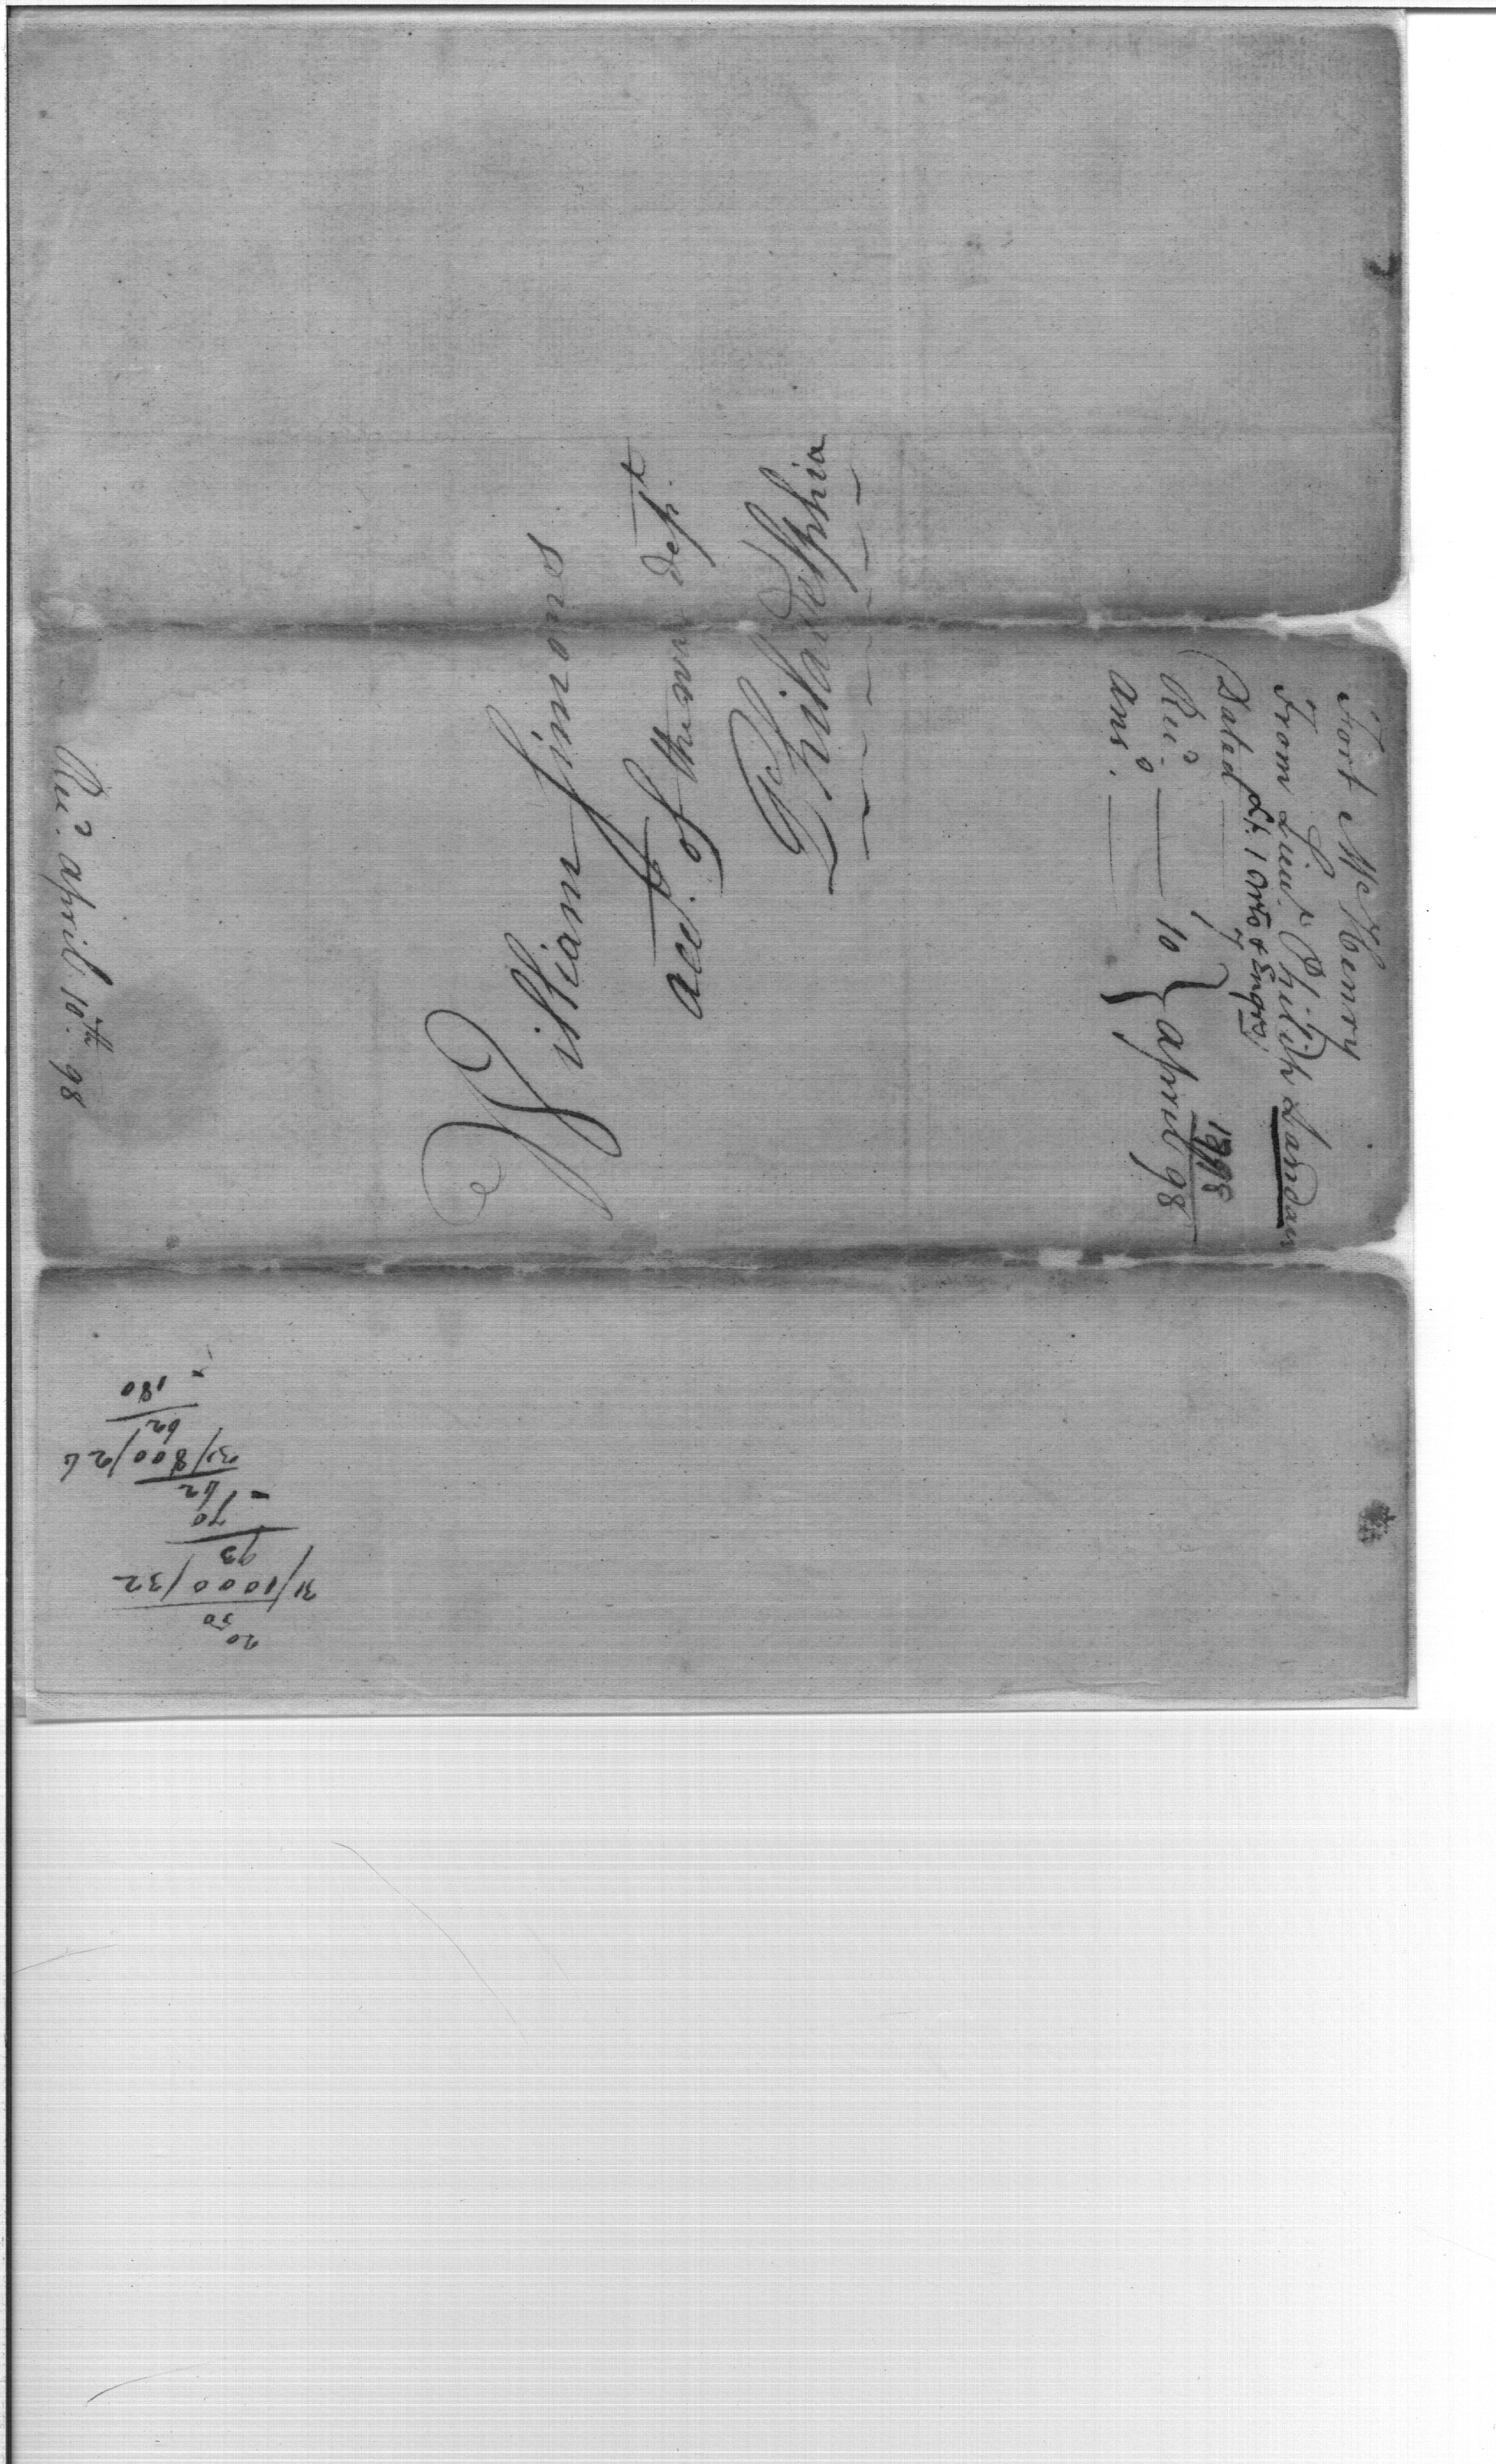 William Simmons
acct. of the war dept
Philadelphia
Fort McHenry
From Lieut. Philip Landais
Lt. 1 Arty & Engrs
Dated 7
Recd. 10 } april 98
Ans.
1798
Recd. april 10th. 98
20
50
31/1000/32
93
70
62
31/800/26
62
180